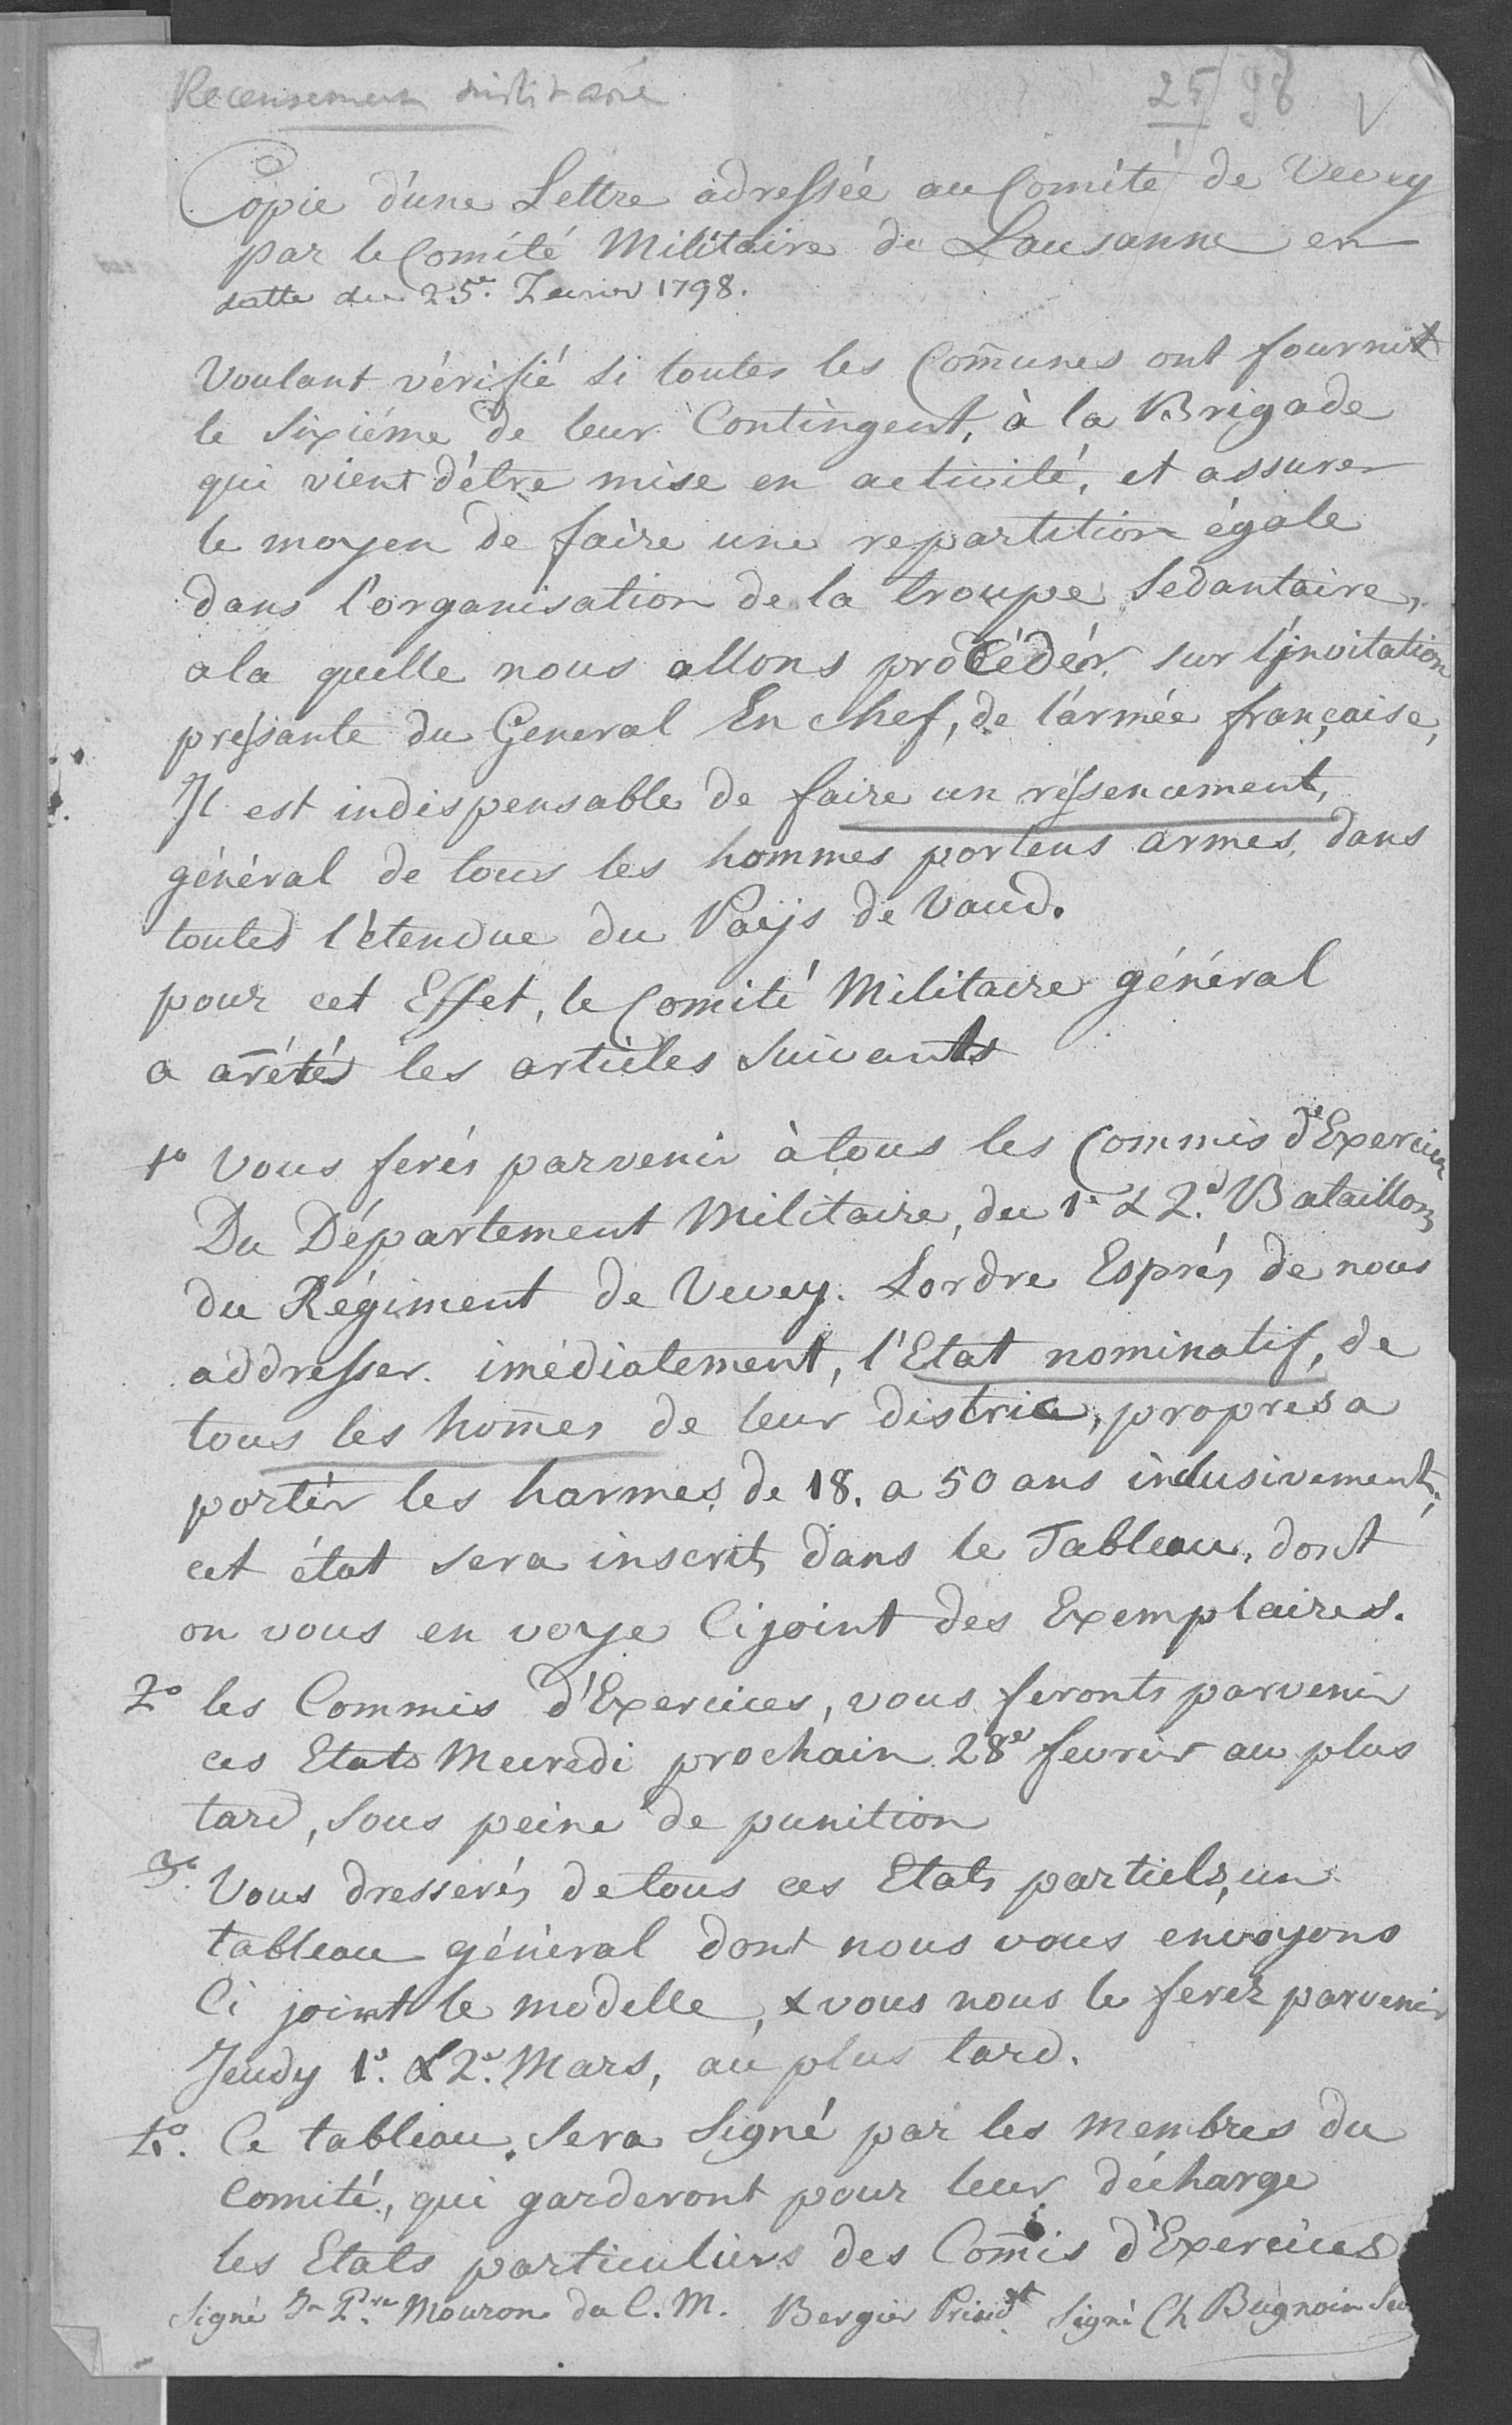 Recensement militaire
25/98 V
Copie d'une Lettre adressée au Comité de Vevey
par le Comité Militaire de Lausanne en
datte du 25e. Fevrier 1798.
Voulant vérifié si toutes les Com̄unes ont fournit
le sixiéme de leur Contingent, à la Brigade
qui vient d'étre mise en activité, et assurer
le moyen de faire une repartition égale
dans l'organisation de la troupe Sedantaire,
a la quelle nous allons procédér sur l'jnvitation
pressante du General En chef, de l'armée française,
Il est indispensable de faire un ressencement,
général de tous les hommes porteus armes, dans
toutes l'étendue du Paÿs de Vaud.
pour cet Effet, le Comité Militaire général
a arétés les articles Suivants
1o Vous ferés parvenir à tous les Commis d'Exercices
Du Département Militaire, du 1e & 2d. Bataillons
du Régiment de Vevey. Lordre Exprés de nous
addresser imédiatement, l'Etat nominatif, de
tous les hom̄es de leur district, propres a
portér les harmes de 18. a 50 ans inclusivement,
cet état sera inscrit dans le Tableau, dont
on vous en voye Cijoint des Exemplaires.
2o les Commis d'Exercices, vous feronts parvenir
ces Etats Mecredi prochain 28e fevrier au plus
tard, sous peine de punition
3o. Vous dresserés de tous ces Etats partiels, un
tableau général dont nous vous envoyons
Ci joint le modelle, & vous nous le ferez parvenir
Jeudy 1e. & 2e. Mars, au plus tard.
4o. Ce tableau sera Signé par les membres du
Comité, qui garderont pour leur décharge
les Etats particuliers des Com̄is d'Exercices
Signé Jn Pre Mouron du C. M. Bergier Présidt. Signé Ch Bugnoin Sec